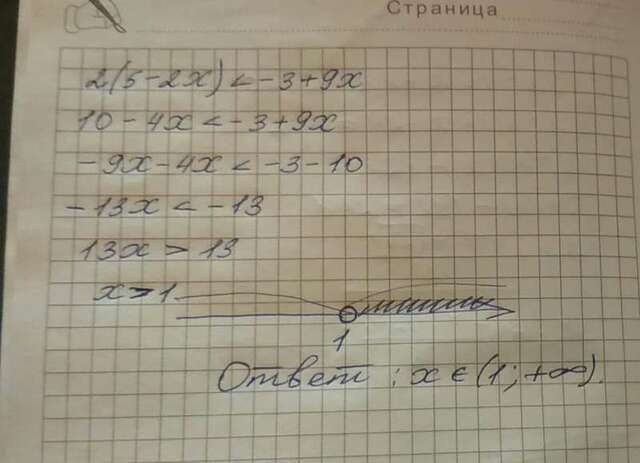 Страница
2(5-2x) < -3+9x
10-4x < -3+9x
-9x-4x < -3-10
-13x < -13
13x > 13
x > 1
1
Ответ: x ∈ (1; +∞).